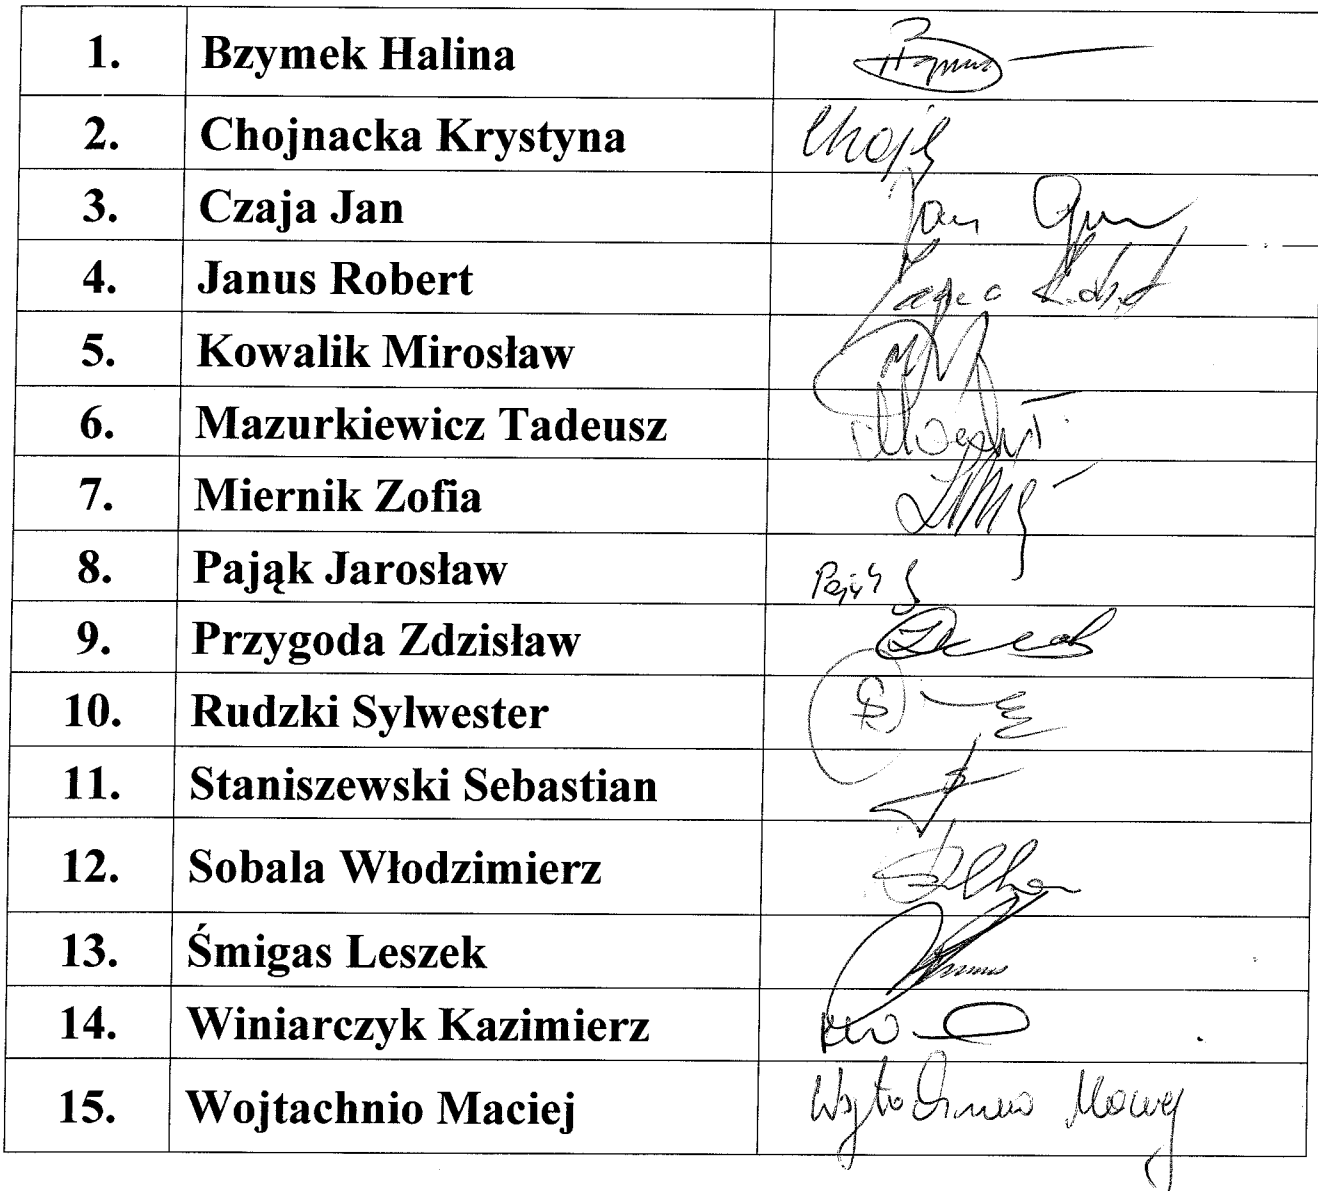 1. Bzymek Halina
2. Chojnacka Krystyna
3. Czaja Jan Jan
4. Janus Robert
5. Kowalik Mirosław
6. Mazurkiewicz Tadeusz
7. Miernik Zofia
8. Pająk Jarosław Pająk J
9. Przygoda Zdzisław
10. Rudzki Sylwester
11. Staniszewski Sebastian
12. Sobala Włodzimierz
13. Śmigas Leszek
14. Winiarczyk Kazimierz
15. Wojtachnio Maciej Wojtachnio Maciej